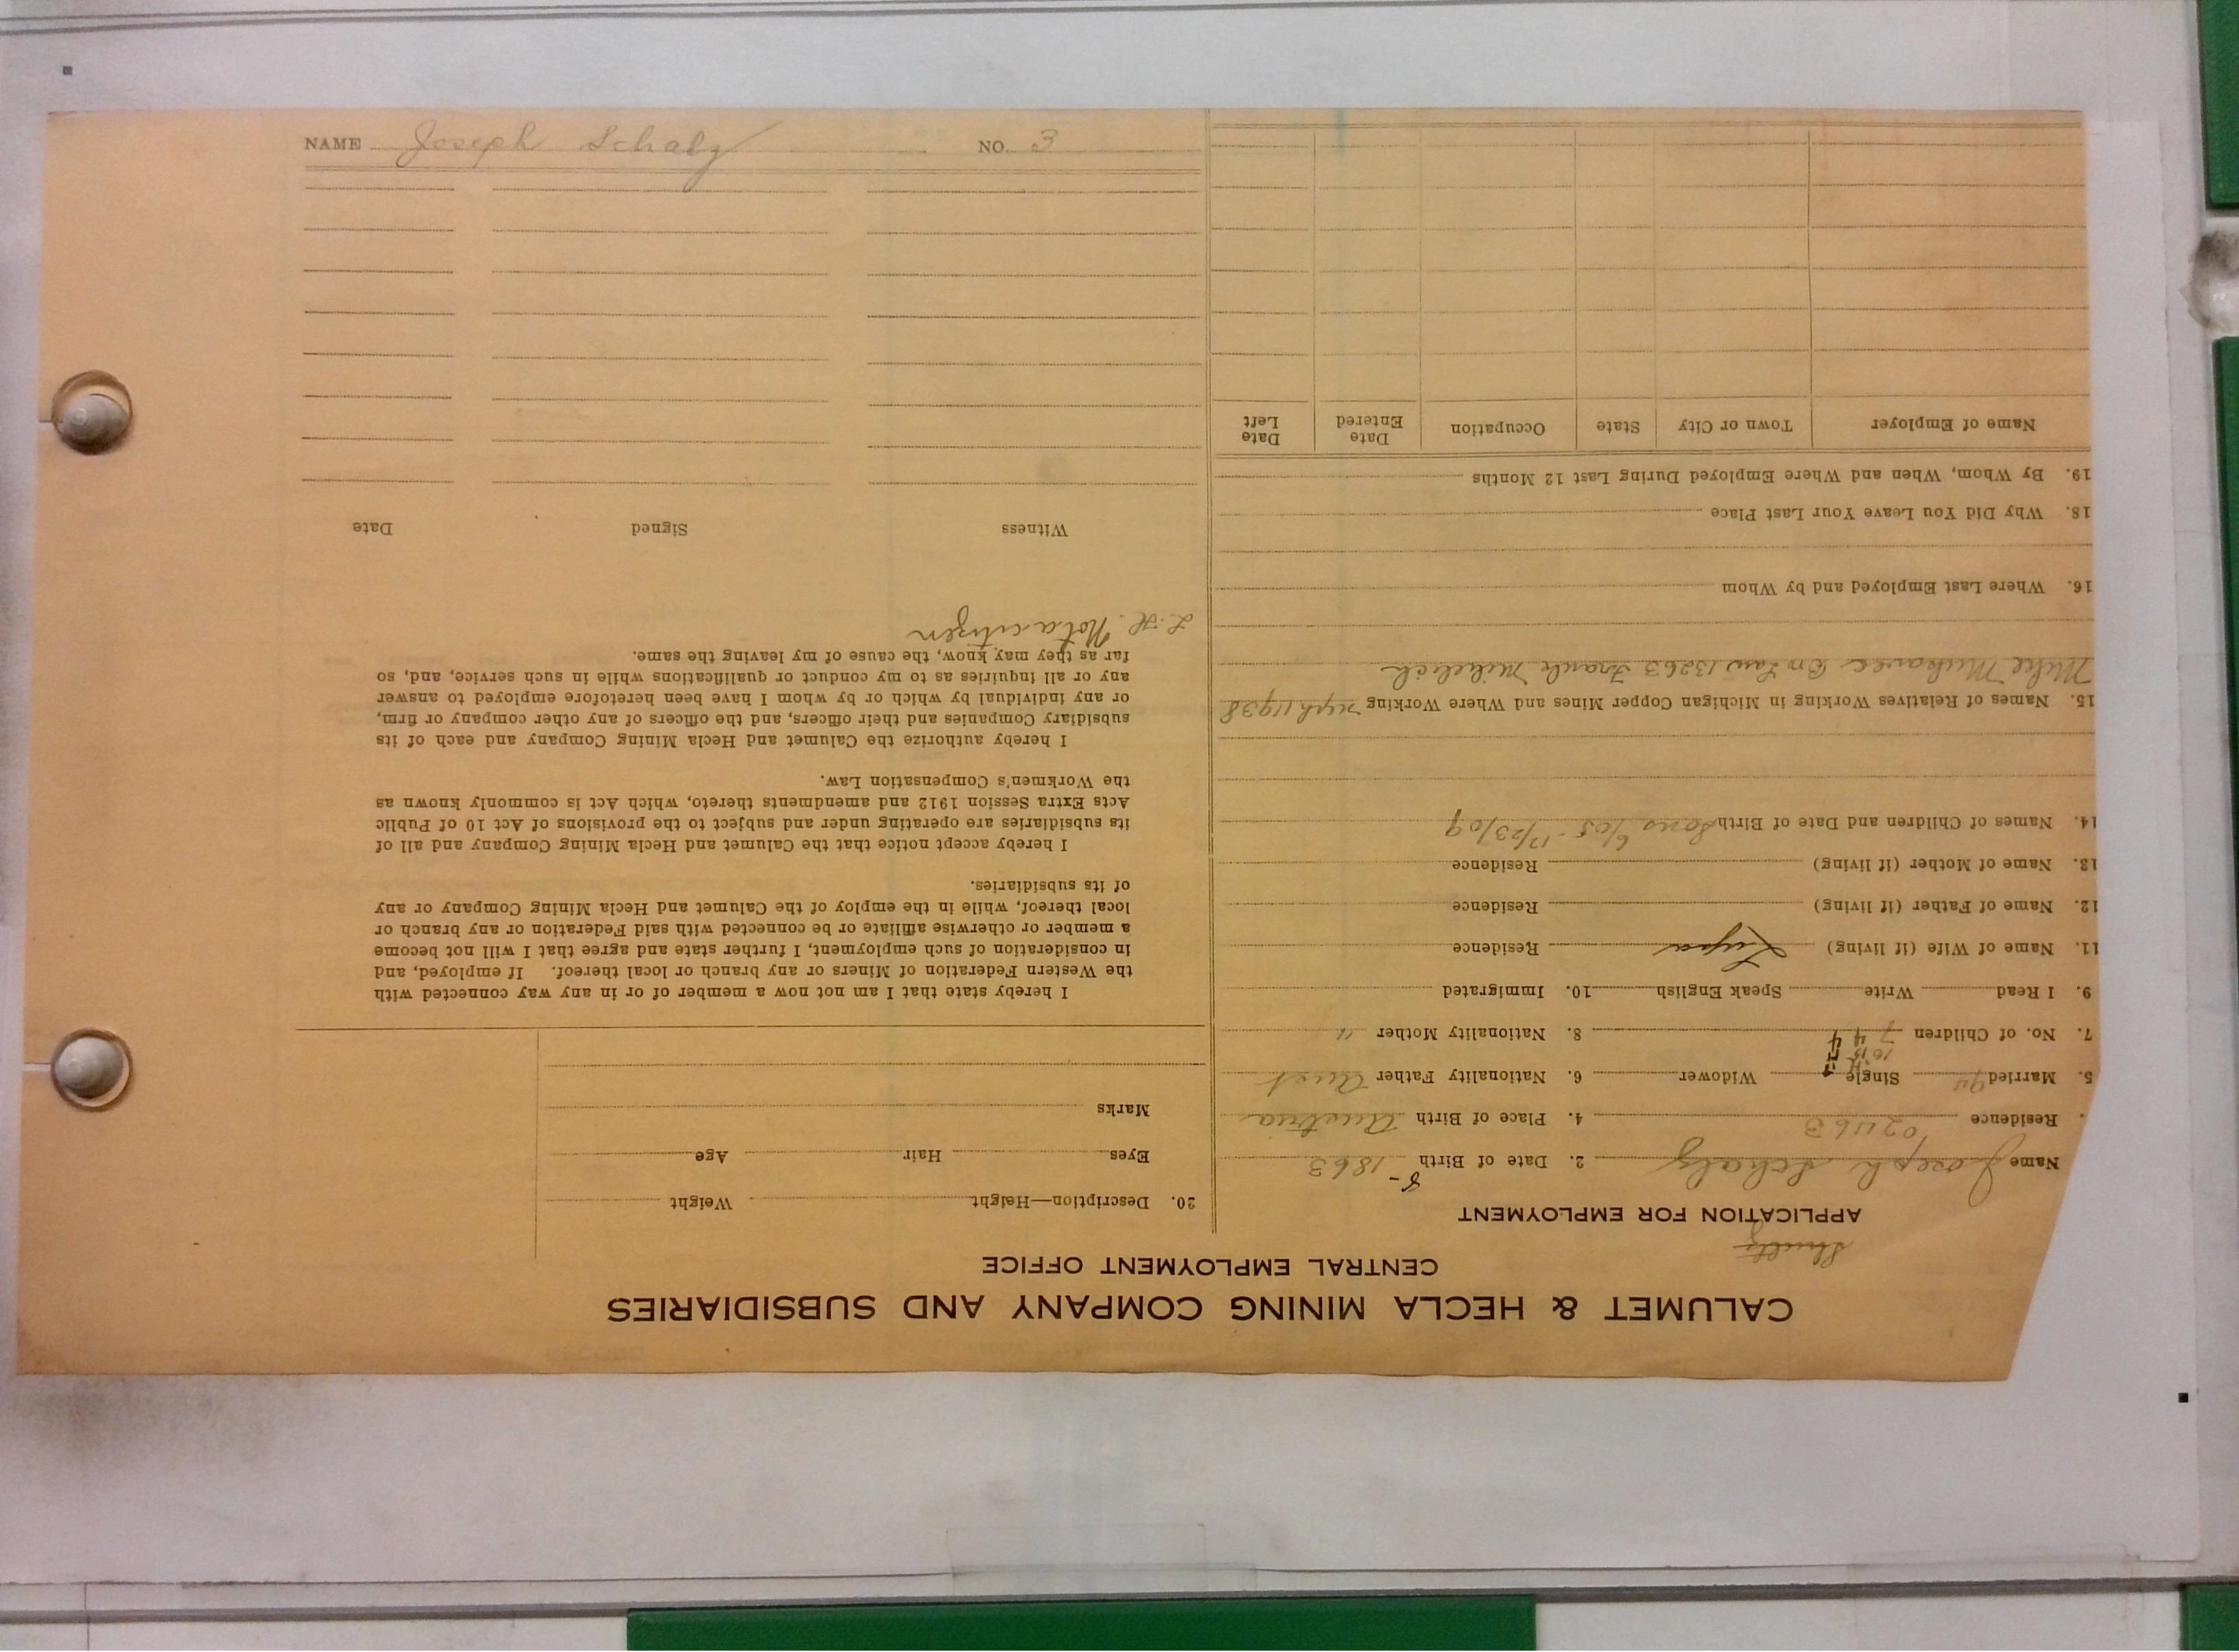 NAME Joseph Schalz NO. 3
CALUMET & HECLA MINING COMPANY AND SUBSIDIARIES
CENTRAL EMPLOYMENT OFFICE
Shultz
APPLICATION FOR EMPLOYMENT
Name Joseph Schalz 2. Date of Birth 8- 1863
Residence 02463 4. Place of Birth Austria
5. Married Single Widower 6. Nationality Father Aust
7. No. of Children 7 4 4 8. Nationality Mother "
9. I Read Write Speak English 10. Immigrated
11. Name of Wife (if living) Residence
12. Name of Father (if living) Residence
13. Name of Mother (if living) Residence
14. Names of Children and Date of Birth Sons 6/05 - 12/23/09
15. Names of Relatives Working in Michigan Copper Mines and Where Working Neph 11938
Mike Muhavec Br Law 13263 Frank Mihelich
16. Where Last Employed and by Whom
18. Why Did You Leave Your Last Place
19. By Whom, When and Where Employed During Last 12 Months
Name of Employer Town or City State Occupation Date Entered Date Left
20. Description—Height Weight
Eyes Hair Age
Marks
I hereby state that I am not now a member of or in any way connected with
the Western Federation of Miners or any branch or local thereof. If employed, and
in consideration of such employment, I further state and agree that I will not become
a member or otherwise affiliate or be connected with said Federation or any branch or
local thereof, while in the employ of the Calumet and Hecla Mining Company or any
of its subsidiaries.
I hereby accept notice that the Calumet and Hecla Mining Company and all of
its subsidiaries are operating under and subject to the provisions of Act 10 of Public
Acts Extra Session 1912 and amendments thereto, which Act is commonly known as
the Workmen's Compensation Law.
I hereby authorize the Calumet and Hecla Mining Company and each of its
subsidiary Companies and their officers, and the officers of any other company or firm,
or any individual by which or by whom I have been heretofore employed to answer
any or all inquiries as to my conduct or qualifications while in such service, and, so
far as they may know, the cause of my leaving the same.
L. H. Not a citizen
Witness Signed Date